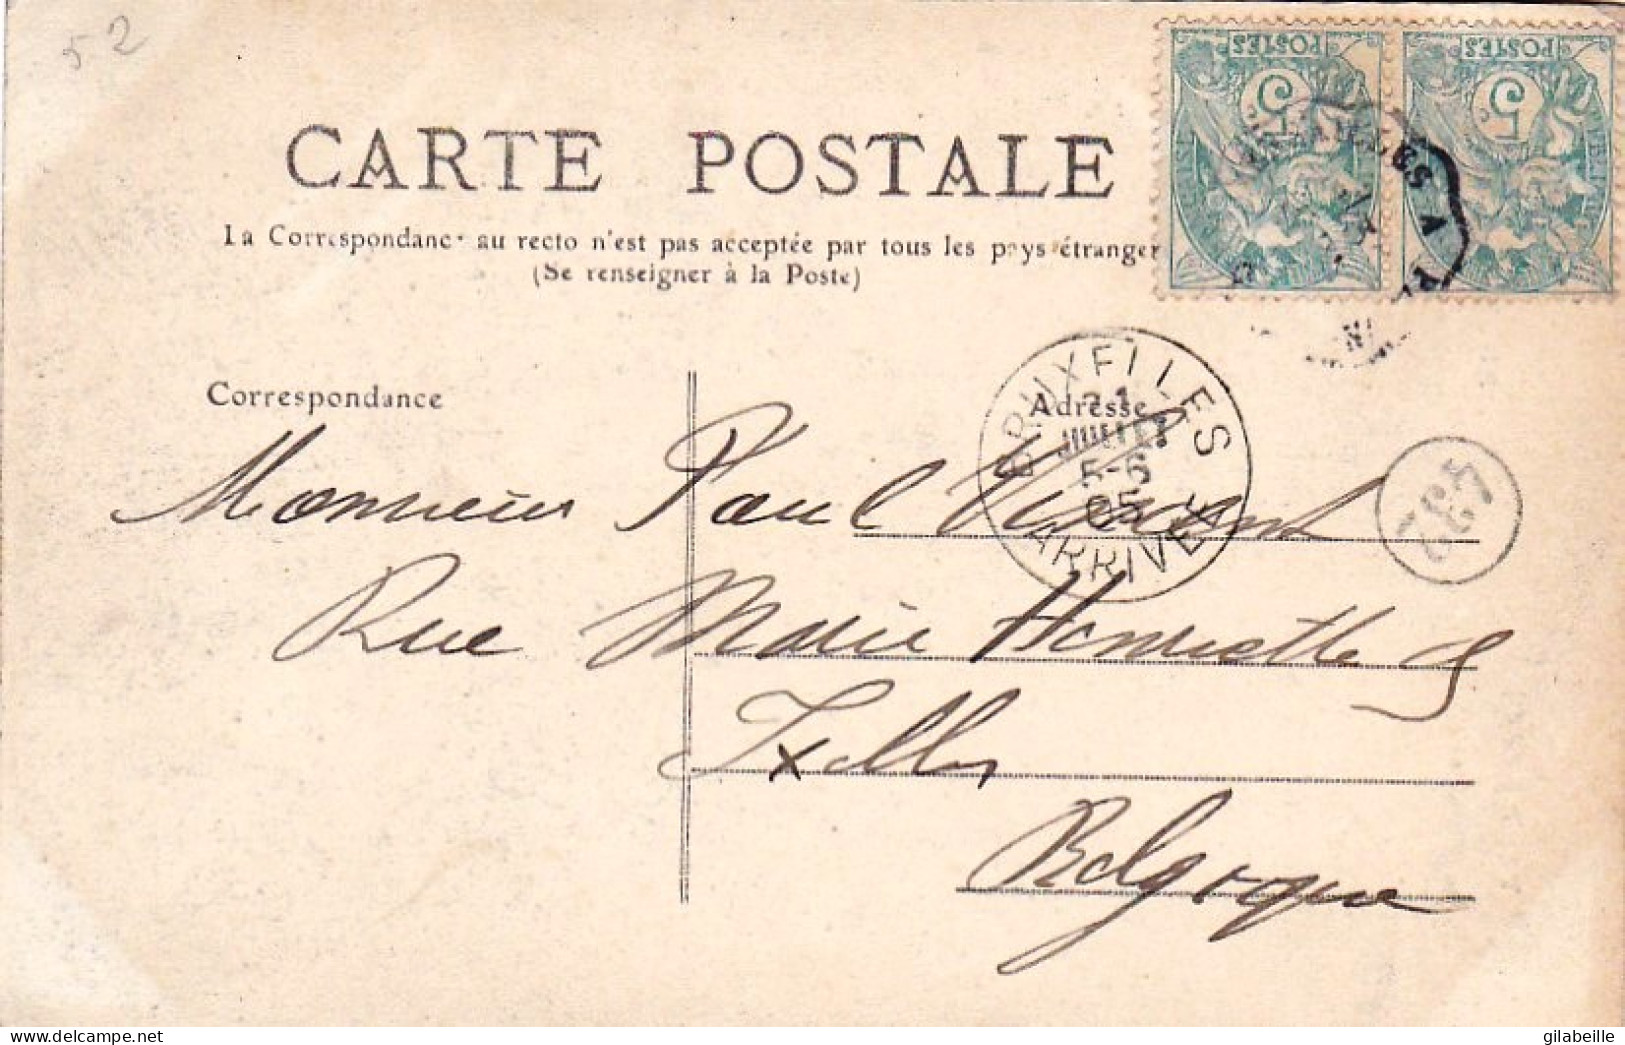 52
POSTES
5
POSTES
5
CARTE POSTALE
La Correspondance au recto n'est pas acceptée par tous les pays étranger
(Se renseigner à la Poste)
Correspondance
Adresse
BRUXELLES
21
JUILLET
5-6
05
ARRIVEE
432
Monsieur Paul Vincent
Rue Marie Henriette 9
Ixelles
Belgique
delcampe.net
gilabeille